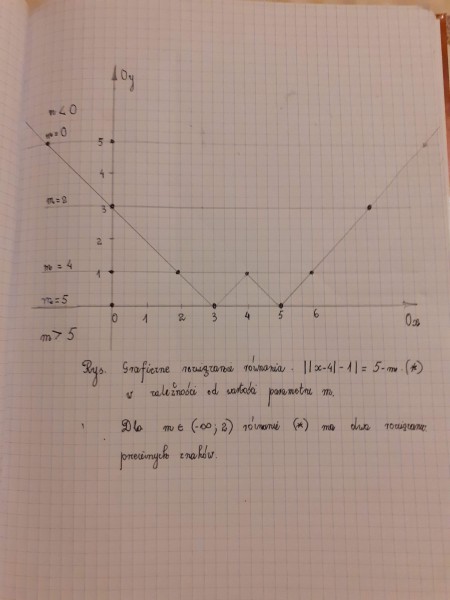 Oy
m < 0
m = 0
5
4
m = 2
3
2
m = 4
1
m = 5
0 1 2 3 4 5 6
Ox
m > 5
Rys. Graficzne rozwiązanie równania ||x-4|-1| = 5-m (*)
w zależności od wartości parametru m.
Dla m ∈ (-∞; 2) równanie (*) ma dwa rozwiązania
przeciwnych znaków.